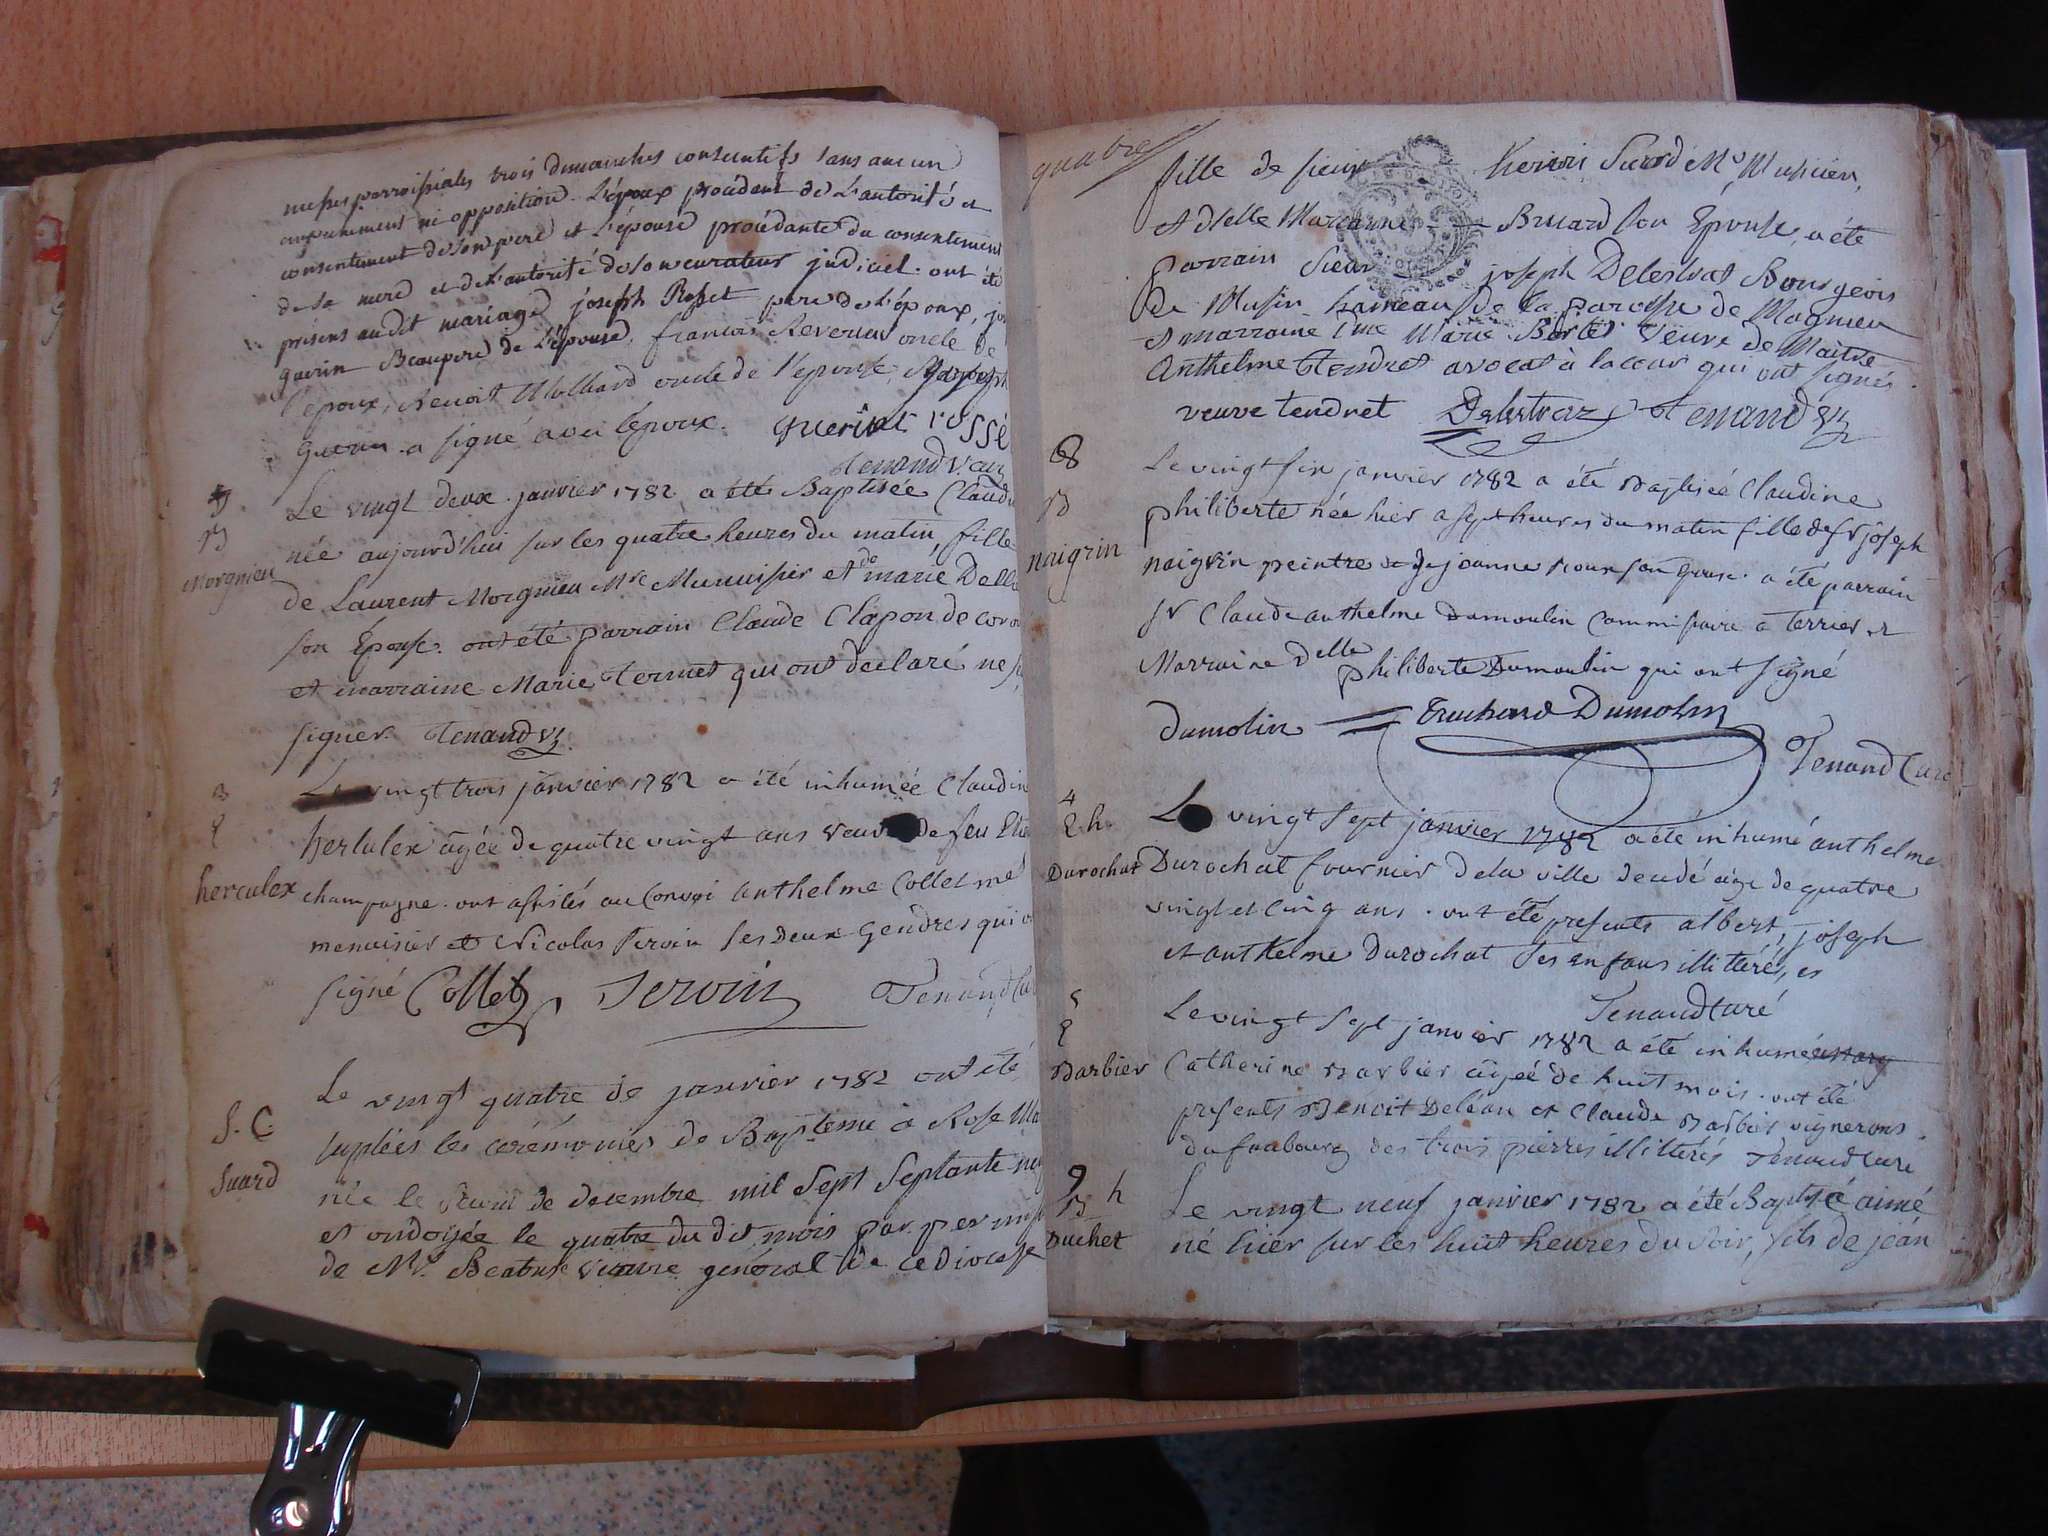 messes parroissiales trois dimanches consecutifs sans aucun
empechement ni opposition. L'époux procédant de L'autorité et
consentement de son pere et L'épouse procédante du consentement
de sa mere et de L'autorité de son curateur judiciel. ont été
présens au dit mariage joseph Rosset pere de L'époux,
guerin Beaupere de L'épouse, francois Reverdy oncle de
l'epoux, Benoit Molliard oncle de l'epouse,
guerin a signé avec l'époux. guerin rossé
tenand v.
7
B
Morgnieu
Le vingt deux janvier 1782 a été Baptisée Claud
née aujourd'hui sur les quatre heures du matin, fille
de Laurent Morgnieu Me Menuisier et de marie Delle
son Epouse. ont été parrain Claude Clapon de
et marraine Marie termet qui ont declaré ne
signer. tenand v.
3
E
herculex
Le vingt trois janvier 1782 a été inhumée Claudin
herlulex agée de quatre vingt ans veuve de feu
champagne. ont assistés au Convoi anthelme Collet me
menuisier et Nicolas Servin ses deux Gendres qui
signé Collet Servin Tenand
S. C.
Suard
Le vingt quatre de janvier 1782 ont été
suplées les cerémonies de Baptême à Rose
née le de decembre mil Sept Septante
et ondoyée le quatre du dit mois par
de Mr. vicaire général de ce Diocese
quatre
fille de sieur henri Suard Me Musicien,
et dlle Marianne Bruard son Epouse, a été
parrain Sieur joseph Delestraz Bourgeois
De Musin hameau de la paroisse de Magnieu
et marraine Dme Marie veuve de Maitre
Anthelme tendret avocat à la cour qui ont signés.
veuve tendret Delestraz tenand v.
8
B
naigrin
Le vingt six janvier 1782 a été Baptisée Claudine
philiberte née hier a sept heures du matin fille de sr joseph
naigrin peintre et de jeanne roux son Epouse. a été parrain
sr Claude anthelme Dumoulin Commissaire a terrier et
Marraine Delle philiberte Dumoulin qui ont signé
Dumolin Truchard Dumolin
Tenand Curé
4
E. h.
Durochat
Le vingt sept janvier 1782 a été inhumé anthelme
Durochat fournier de la ville decedé age de quatre
vingt et cinq ans. ont été presents albert, joseph
et anthelme Durochat ses enfans illitérés
Tenand Curé
5
E
Barbier
Le vingt sept janvier 1782 a été inhumée
Catherine Barbier agée de huit mois. ont été
presents Benoit Deléan et Claude Barbier vignerons
du faubourg des trois pierres illitérés Tenand Curé
9
B h
Duchet
Le vingt neuf janvier 1782 a été Baptisé aimé
né hier sur les huit heures du soir, fils de jean